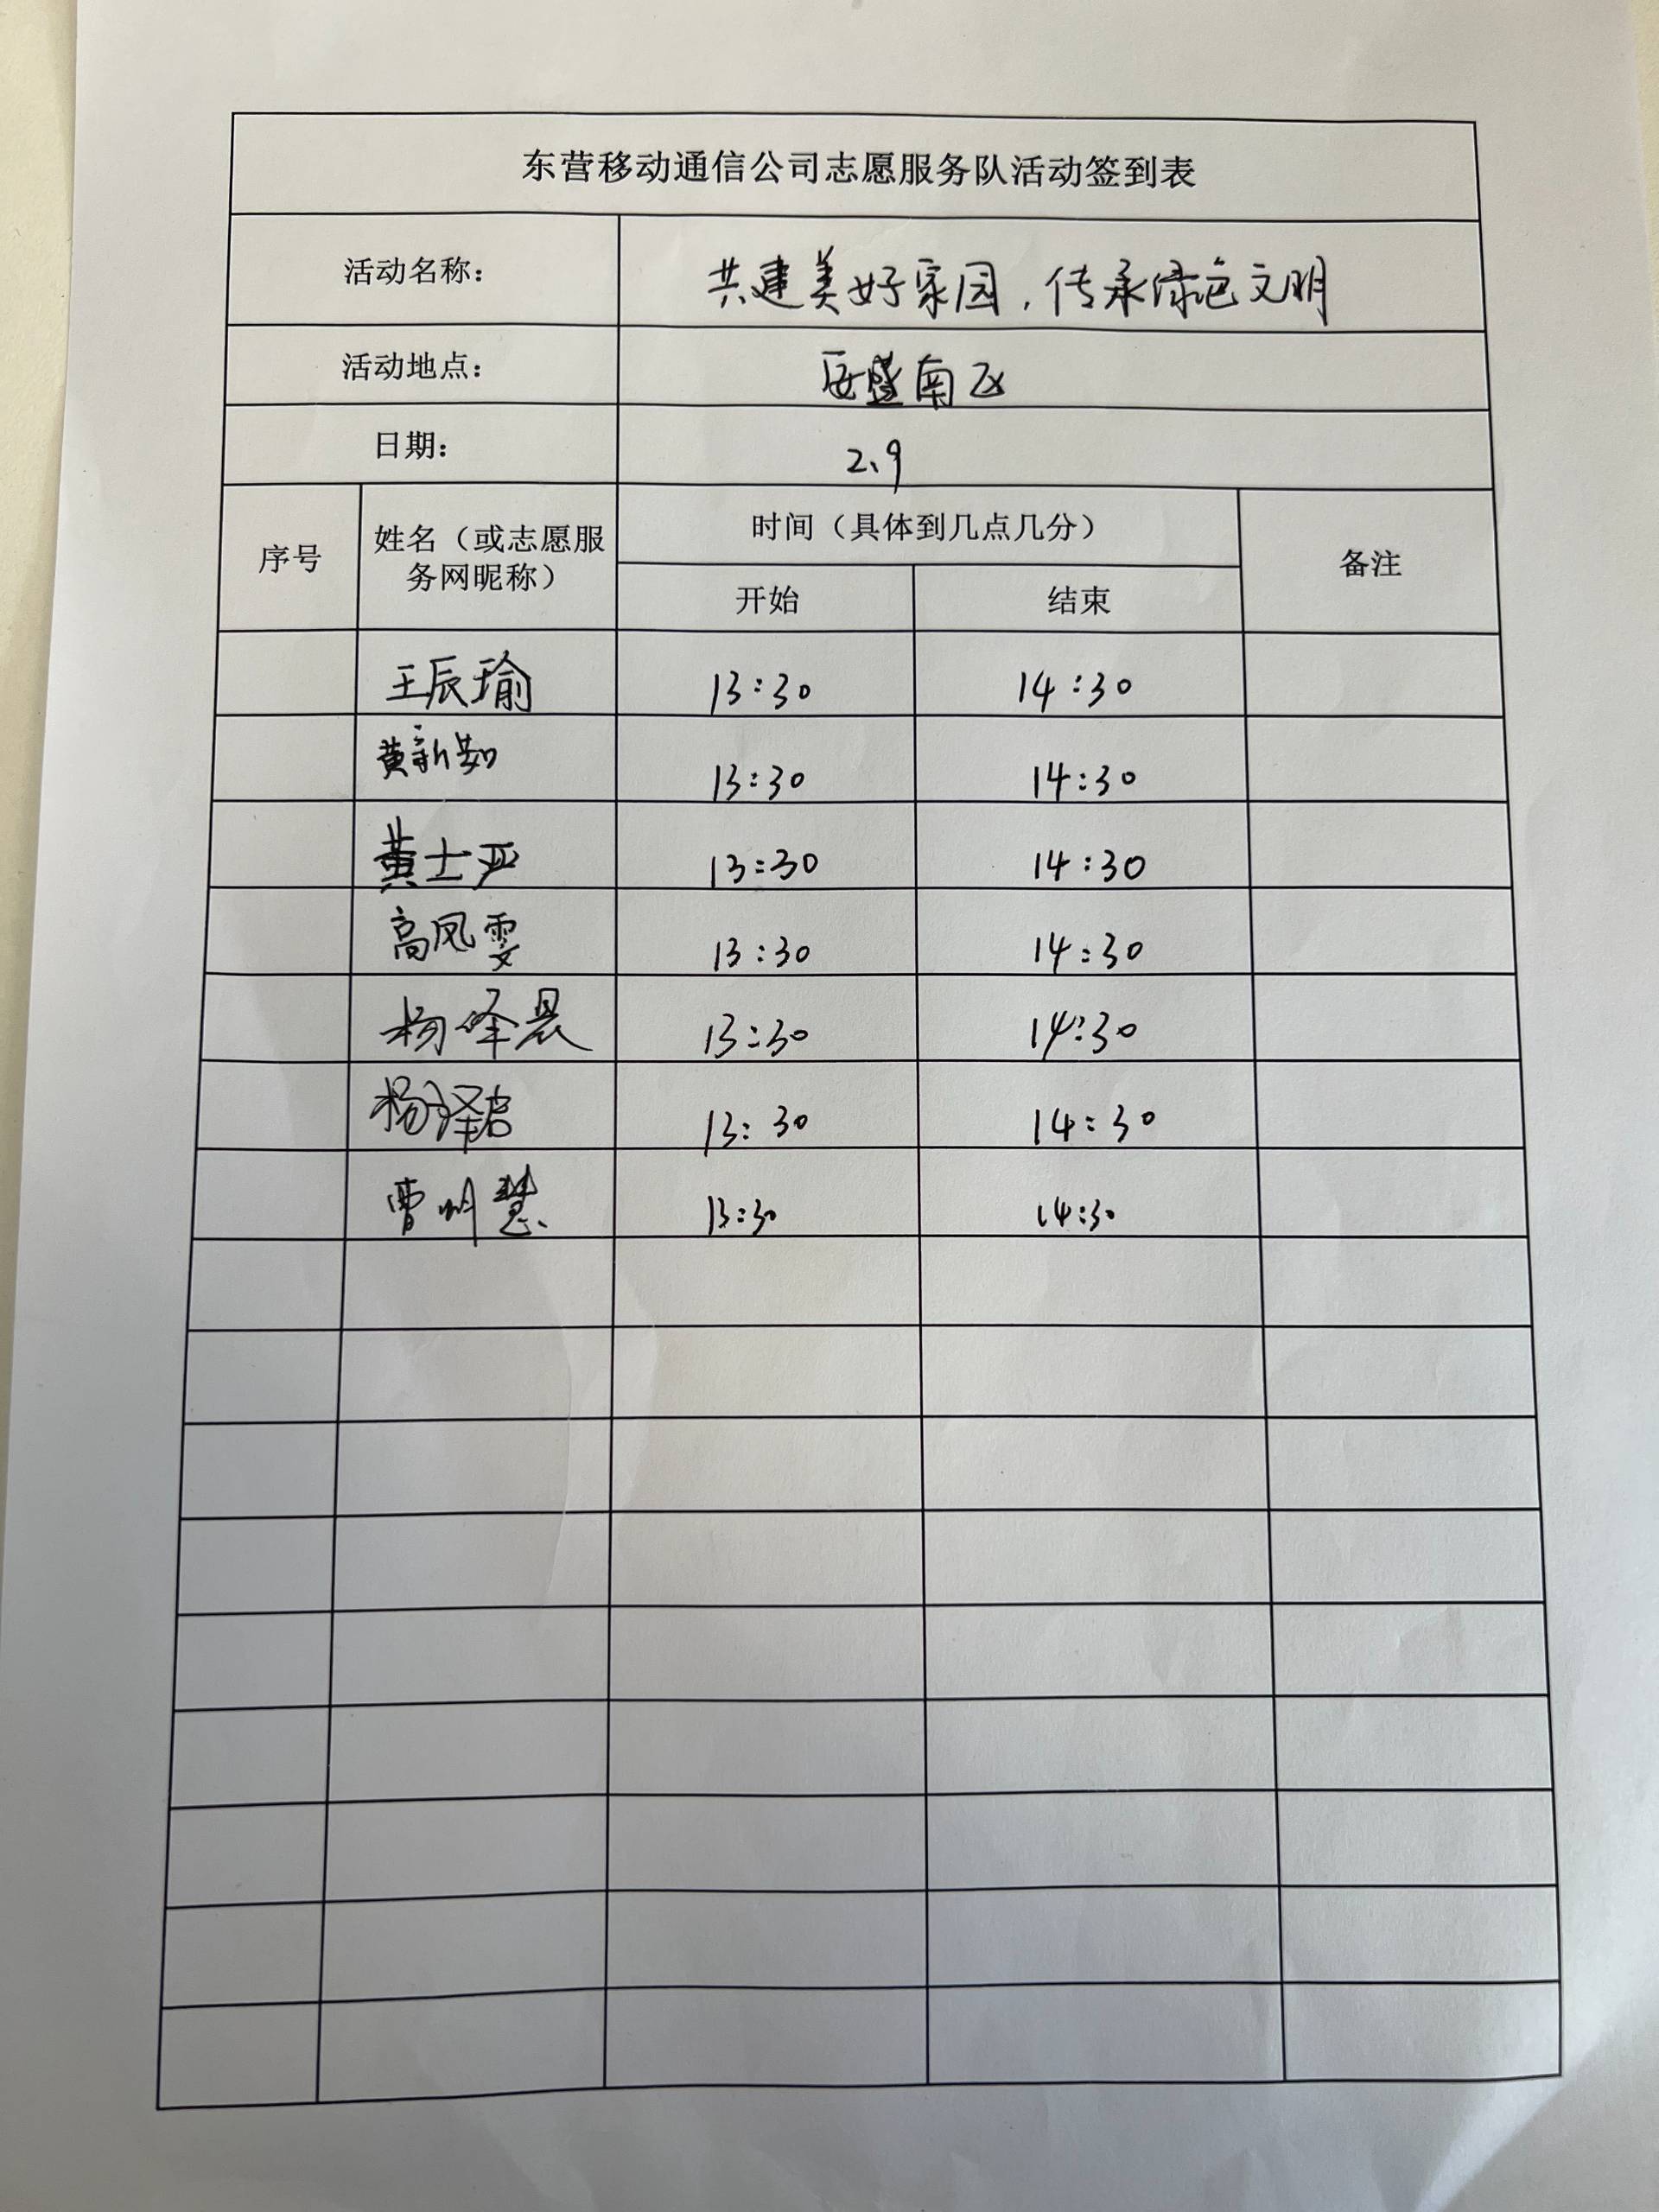 东营移动通信公司志愿服务队活动签到表
活动名称： 共建美好家园，传承绿色文明
活动地点： 辰盛南区
日期： 2、9
序号 姓名（或志愿服务网昵称） 时间（具体到几点几分） 备注
开始 结束
王辰瑜 13:30 14:30
黄新 13:30 14:30
黄士严 13:30 14:30
高凤雯 13:30 14:30
杨泽晨 13:30 14:30
杨泽启 13:30 14:30
曹明慧 13:30 14:30